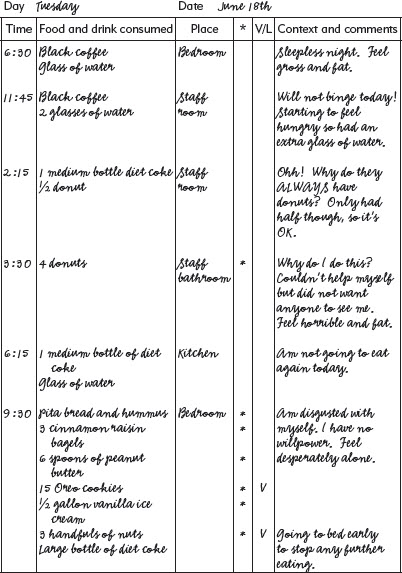 Day Tuesday Date June 18th
Time Food and drink consumed Place * V/L Context and comments
6:30 Black coffee Bedroom Sleepless night. Feel
Glass of water gross and fat.
11:45 Black coffee Staff Will not binge today!
2 glasses of water room Starting to feel
hungry so had an
extra glass of water.
2:15 1 medium bottle diet coke Staff Ohh! Why do they
½ donut room ALWAYS have
donuts? Only had
half though, so it's
OK.
3:30 4 donuts Staff * Why do I do this?
bathroom Couldn't help myself
but did not want
anyone to see me.
Feel horrible and fat.
6:15 1 medium bottle of diet Kitchen Am not going to eat
coke again today.
Glass of water
9:30 Pita bread and hummus Bedroom * Am disgusted with
3 cinnamon raisin * myself. I have no
bagels willpower. Feel
6 spoons of peanut * desperately alone.
butter
15 Oreo cookies * V
½ gallon vanilla ice *
cream
3 handfuls of nuts * V Going to bed early
Large bottle of diet coke to stop any further
eating.